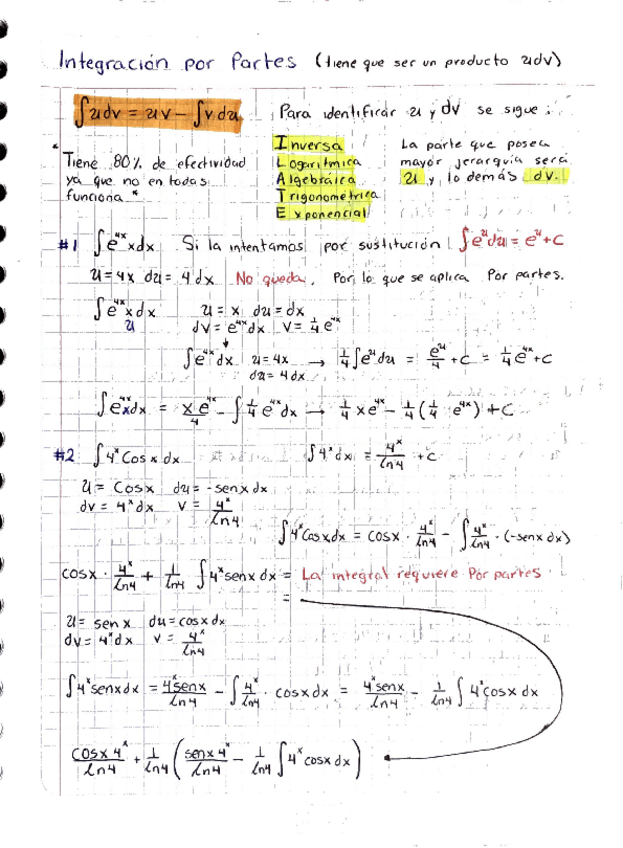 Integración por Partes (tiene que ser un producto udv)
∫udv = uv - ∫vdu Para identificar u y dv se sigue:
"Tiene 80% de efectividad ya que no en todas funciona"
Inversa
Logarítmica
Algebráica
Trigonométrica
Exponencial
La parte que posea
mayor jerarquía será
u y lo demás dv.
#1 ∫e^4x xdx Si la intentamos por sustitución ∫e^u du = e^u + C
u = 4x du = 4dx No queda. Por lo que se aplica Por partes.
∫e^4x xdx u = x du = dx
u dv = e^4x dx v = 1/4 e^4x
∫e^4x dx u = 4x → 1/4 ∫e^u du = e^u/4 + C = 1/4 e^4x + C
du = 4dx
∫e^4x xdx = x e^4x/4 - ∫1/4 e^4x dx → 1/4 xe^4x - 1/4 (1/4 e^4x) + C
#2 ∫4^x Cos x dx ∫4^x dx = 4^x/ln4 + C
u = Cosx du = -senx dx
dv = 4^x dx v = 4^x/ln4
∫4^x Cosx dx = cosx · 4^x/ln4 - ∫4^x/ln4 · (-senx dx)
cosx · 4^x/ln4 + 1/ln4 ∫4^x senx dx = La integral requiere Por partes
=
u = sen x du = cosx dx
dv = 4^x dx v = 4^x/ln4
∫4^x senxdx = 4^x senx/ln4 - ∫4^x/ln4 · cosx dx = 4^x senx/ln4 - 1/ln4 ∫4^x cosx dx
cosx 4^x/ln4 + 1/ln4 (senx 4^x/ln4 - 1/ln4 ∫4^x cosx dx)